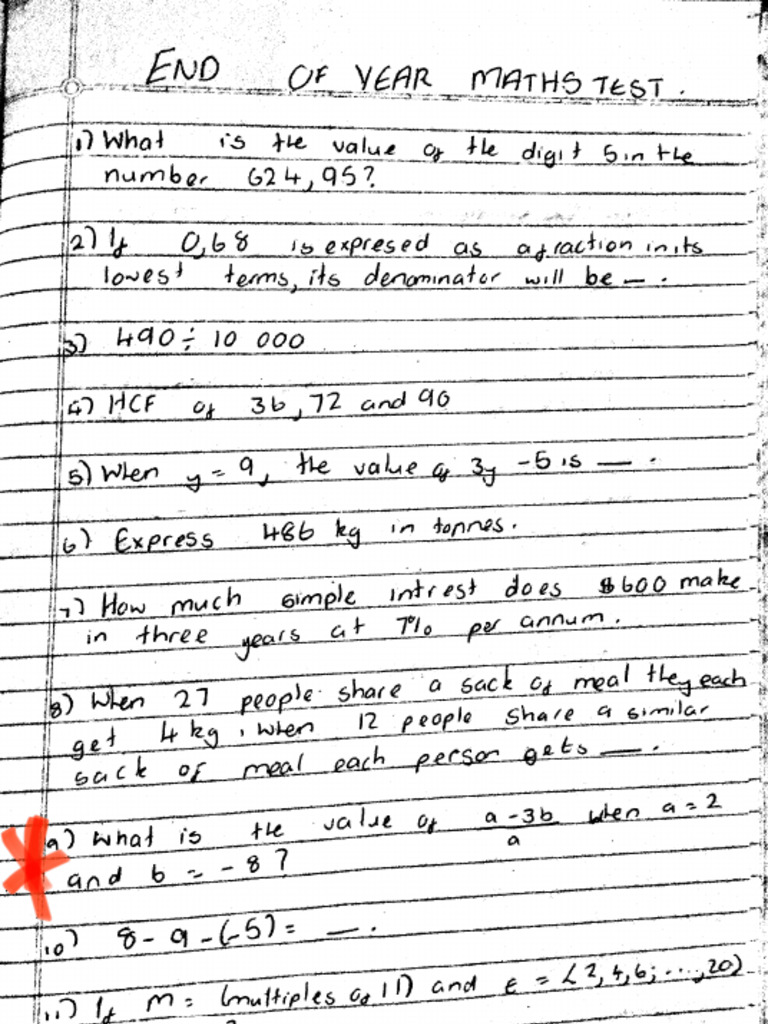 END OF YEAR MATHS TEST.
1) What is the value of the digit 5 in the
number 624,95?
2) If 0,68 is expresed as a fraction in its
lowest terms, its denominator will be — .
3) 490 ÷ 10 000
4) HCF of 36, 72 and 90
5) When y = 9, the value of 3y - 5 is — .
6) Express 486 kg in tonnes.
7) How much simple intrest does $600 make
in three years at 7% per annum.
8) When 27 people share a sack of meal they each
get 4 kg, when 12 people share a similar
sack of meal each person gets — .
9) What is the value of a - 3b / a when a = 2
and b = -8?
10) 8 - 9 - (-5) = — .
11) If M = (multiples of 11) and ε = {2, 4, 6; ..., 20}